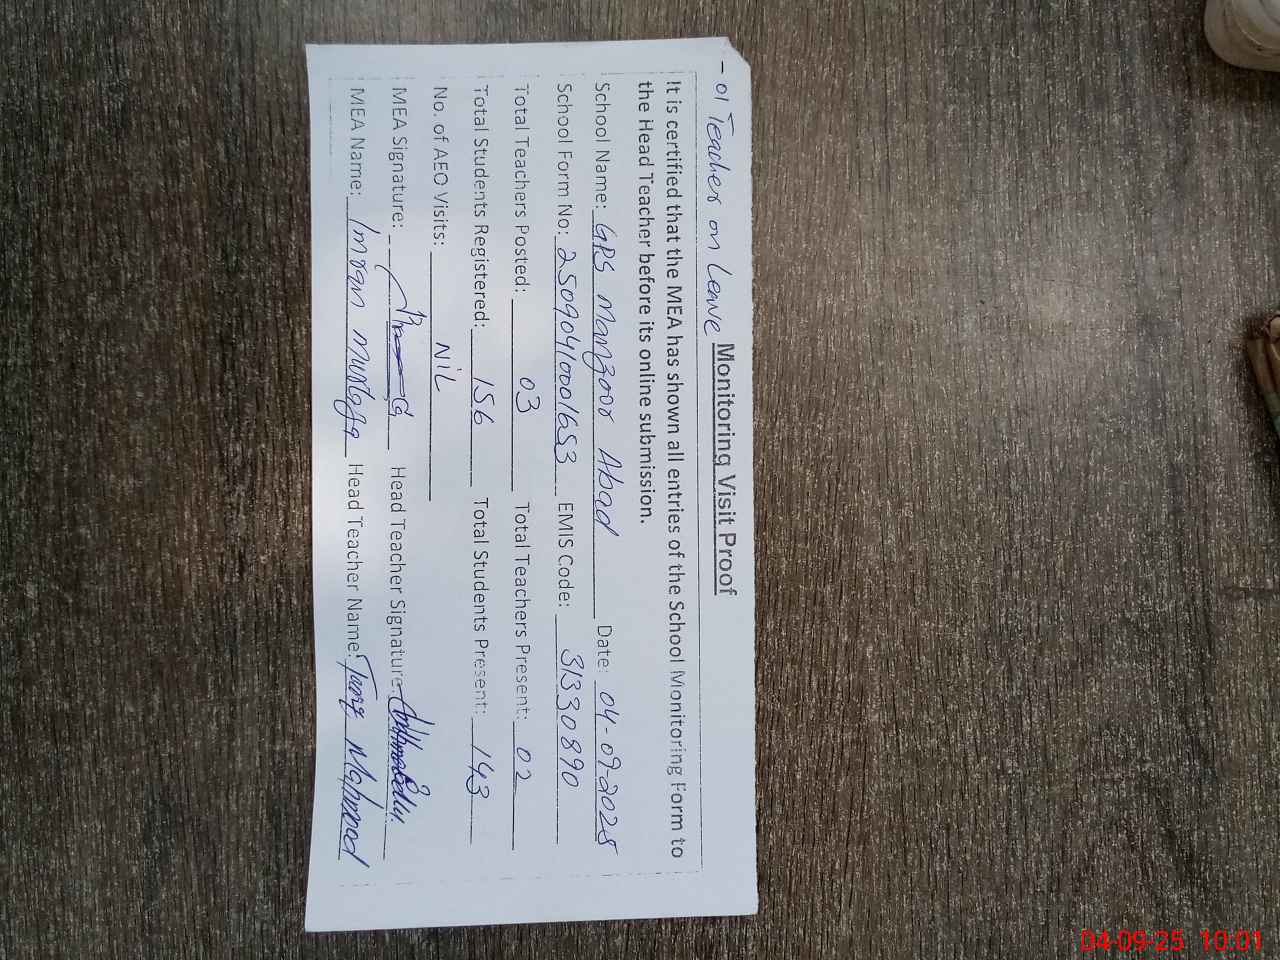 - 01 Teacher on Leave
Monitoring Visit Proof
It is certified that the MEA has shown all entries of the School Monitoring Form to
the Head Teacher before its online submission.
School Name: GPS Manzoor Abad Date: 04-09-2025
School Form No: 25090410001653 EMIS Code: 31330890
Total Teachers Posted: 03 Total Teachers Present: 02
Total Students Registered: 156 Total Students Present: 143
No. of AEO Visits: NiL
MEA Signature: Head Teacher Signature:
MEA Name: Imran Mustafa Head Teacher Name: Tariq Mahmood
04-09-25 10:01